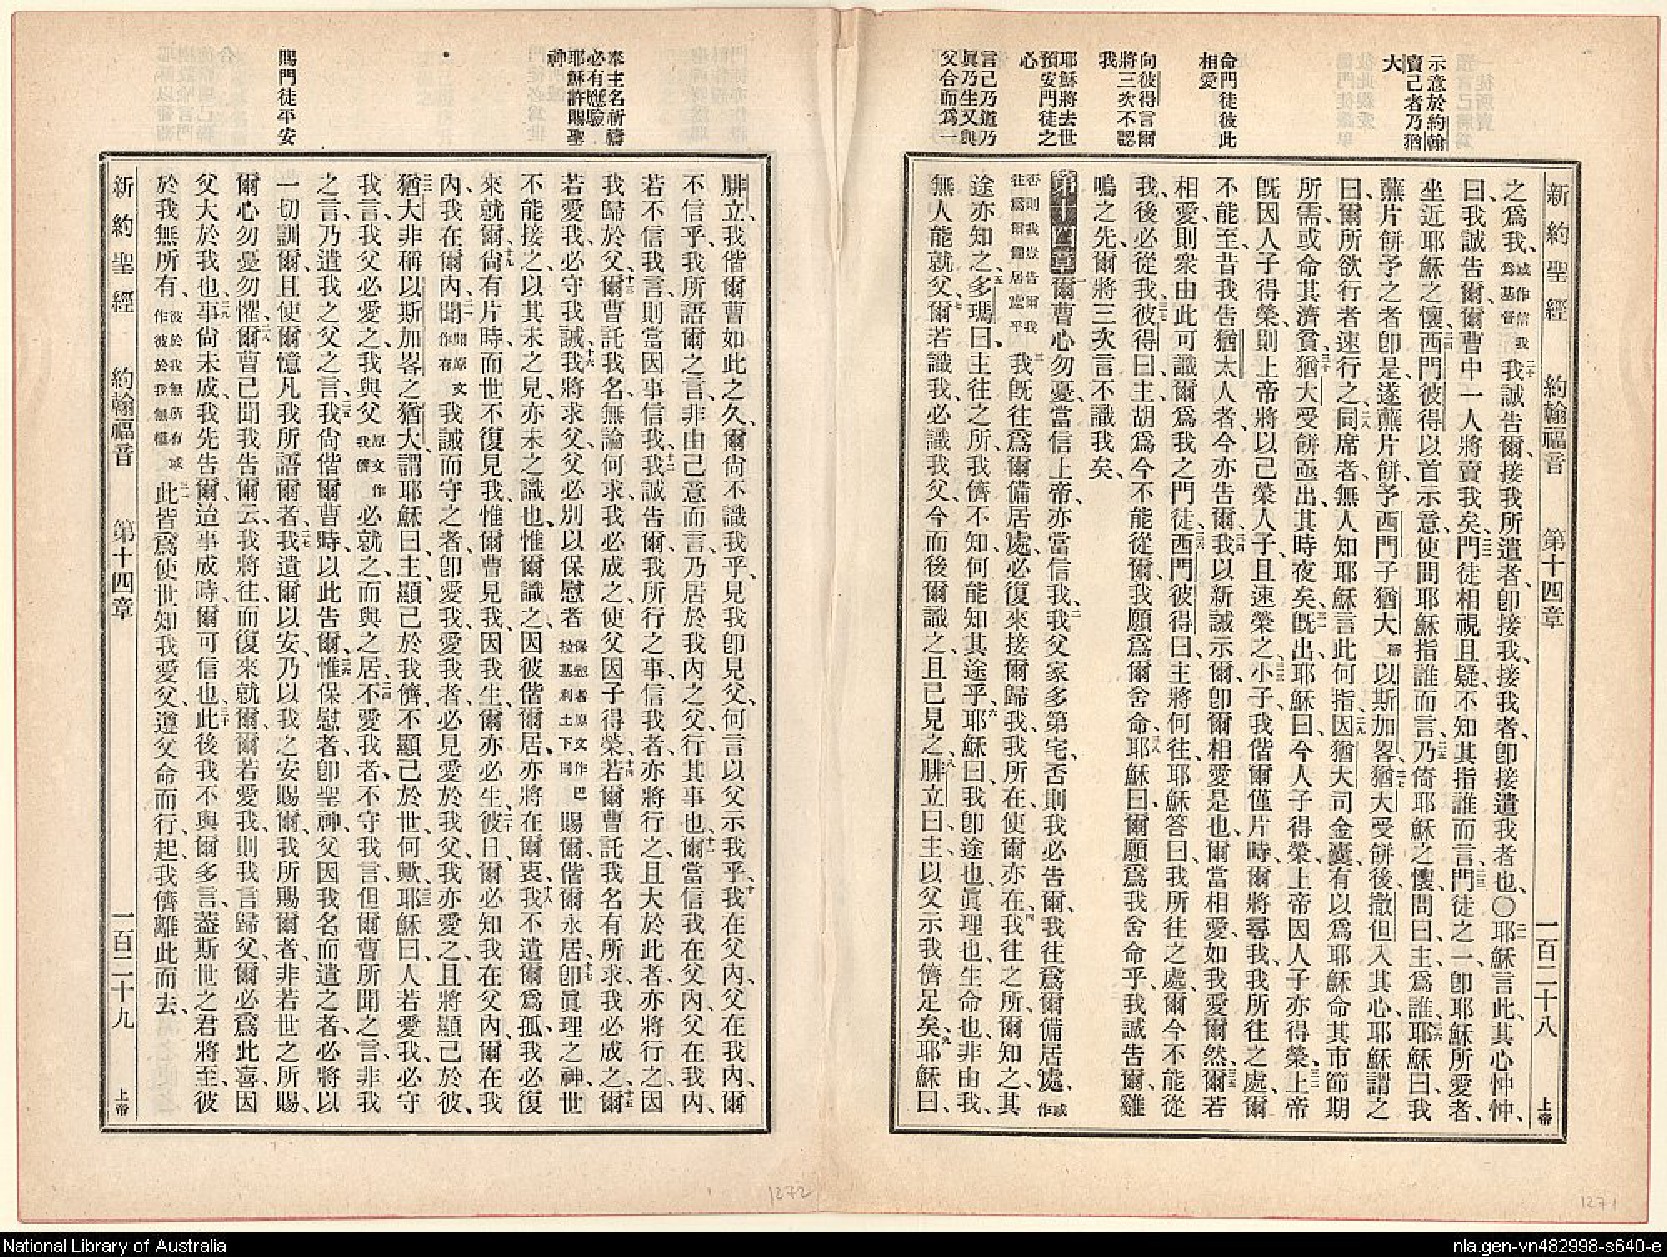 示意於約翰
賣己者乃猶
大
命門徒彼此
相愛
向彼得言爾
將三次不認
我
耶穌將去世
預安門徒之
心
言己乃道乃
眞乃生又與
父合而爲一
新約聖經 約翰福音 第十四章 一百二十八 上帝
之爲我、或作信我爲基督二十我誠告爾、接我所遣者、卽接我、接我者、卽接遣我者也、〇二一耶穌言此、其心忡忡、
曰、我誠告爾、爾曹中一人將賣我矣、二二門徒相視、且疑不知其指誰而言、二三門徒之一、卽耶穌所愛者、
坐近耶穌之懷、二四西門彼得以首示意、使問耶穌指誰而言、二五乃倚耶穌之懷、問曰、主爲誰、二六耶穌曰、我
蘸片餅予之者卽是、遂蘸片餅、予西門子猶大、稱以斯加畧、二七猶大受餅後、撒但入其心、耶穌謂之
曰、爾所欲行者速行之、二八同席者、無人知耶穌言此何指、二九因猶大司金囊、有以爲耶穌命其市節期
所需、或命其濟貧、三十猶大受餅亟出、其時夜矣、三一旣出、耶穌曰、今人子得榮、上帝因人子亦得榮、三二上帝
旣因人子得榮、則上帝將以己榮人子、且速榮之、三三小子、我偕爾僅片時、爾將尋我、我所往之處、爾
不能至、昔我告猶太人者、今亦告爾、三四我以新誡示爾、卽爾相愛是也、爾當相愛、如我愛爾然、三五爾若
相愛、則衆由此可識爾爲我之門徒、三六西門彼得曰、主將何往、耶穌答曰、我所往之處、爾今不能從
我、後必從我、三七彼得曰、主、胡爲今不能從爾、我願爲爾舍命、三八耶穌曰、爾願爲我舍命乎、我誠告爾、雞
鳴之先、爾將三次言不識我矣、
第十四章 一爾曹心勿憂、當信上帝、亦當信我、二我父家多第宅、否則我必告爾、我往爲爾備居處、或作
否則我豈告爾我往爲爾備居處乎三我旣往爲爾備居處、必復來接爾歸我、我所在、使爾亦在、四我往之所、爾知之、其
途亦知之、五多瑪曰、主往之所、我儕不知、何能知其途乎、六耶穌曰、我卽途也、眞理也、生命也、非由我、
無人能就父、七爾若識我、必識我父、今而後爾識之、且已見之、八腓立曰、主以父示我儕足矣、九耶穌曰、
奉主名祈禱
必有應驗
耶穌許賜聖
神
賜門徒平安
腓立、我偕爾曹如此之久、爾尙不識我乎、見我卽見父、何言以父示我乎、十我在父內、父在我內、爾
不信乎、我所語爾之言、非由己意而言、乃居於我內之父、行其事也、十一爾當信我在父內、父在我內、
若不信我言、則當因事信我、十二我誠告爾、我所行之事、信我者亦將行之、且大於此者亦將行之、因
我歸於父、十三爾曹託我名、無論何求、我必成之、使父因子得榮、十四若爾曹託我名有所求、我必成之、十五爾
若愛我、必守我誡、十六我將求父、父必別以保慰者、保慰者原文作巴拉基利土下同賜爾、偕爾永居、十七卽眞理之神、世
不能接之、以其未之見、亦未之識也、惟爾識之、因彼偕爾居、亦將在爾衷、十八我不遺爾爲孤、我必復
來就爾、十九尙有片時、而世不復見我、惟爾曹見我、因我生、爾亦必生、二十彼日爾必知我在父內、爾在我
內、我在爾內、二一聞聞原文作有我誡而守之者、卽愛我、愛我者、必見愛於我父、我亦愛之、且將顯己於彼、
二二猶大非稱以斯加畧之猶大、謂耶穌曰、主顯己於我儕、不顯己於世、何歟、二三耶穌曰、人若愛我、必守
我言、我父必愛之、我與父原文作我儕必就之、而與之居、二四不愛我者、不守我言、但爾曹所聞之言、非我
之言、乃遣我之父之言、二五我尙偕爾曹時、以此告爾、二六惟保慰者、卽聖神、父因我名而遣之者、必將以
一切訓爾、且使爾憶凡我所語爾者、二七我遺爾以安、乃以我之安賜爾、我所賜爾者、非若世之所賜、
爾心勿憂勿懼、二八爾曹已聞我告爾云、我將往而復來就爾、爾若愛我、則我言歸父、爾必爲此喜、因
父大於我也、二九事尙未成、我先告爾、迨事成時、爾可信也、三十此後我不與爾多言、蓋斯世之君將至、彼
於我無所有、彼於我無所有或作彼於我無權三一此皆爲使世知我愛父、遵父命而行、起、我儕離此而去、
新約聖經 約翰福音 第十四章 一百二十九 上帝
1272
1271
National Library of Australia
nla.gen-vn482998-s640-e